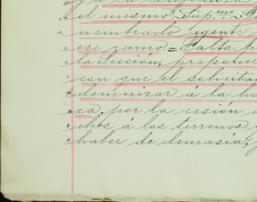 el mismo Sup.mo
nombrado agente
ese ramo = Falta p
la Seccion, proponer
con que el solicitan
demnizar á la ha
ca, por la cesión
chos á los terrenos
haber de demasia,